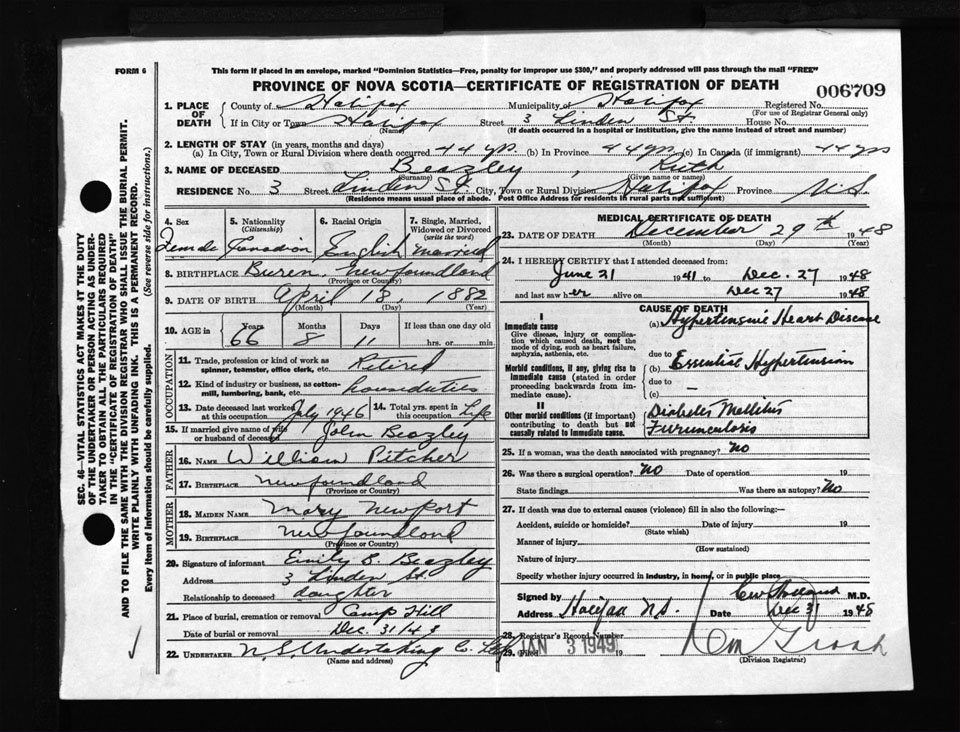 FORM 6
This form if placed in an envelope, marked "Dominion Statistics—Free, penalty for improper use $300," and properly addressed will pass through the mail "FREE"
PROVINCE OF NOVA SCOTIA—CERTIFICATE OF REGISTRATION OF DEATH
006709
1. PLACE OF DEATH
County of Halifax Municipality of Halifax Registered No.
(For use of Registrar General only)
If in City or Town Halifax Street 3 Linden St. House No.
(Name) (If death occurred in a hospital or institution, give the name instead of street and number)
2. LENGTH OF STAY (in years, months and days)
(a) In City, Town or Rural Division where death occurred 44 yrs. (b) In Province 44 yrs (c) In Canada (if immigrant) 44 yrs
3. NAME OF DECEASED Beazley, Ruth
(Surname) (Given name or names)
RESIDENCE No. 3 Street Linden St. City, Town or Rural Division Halifax Province N.S.
(Residence means usual place of abode. Post Office Address for residents in rural parts not sufficient)
4. Sex Female
5. Nationality (Citizenship) Canadian
6. Racial Origin English
7. Single, Married, Widowed or Divorced (write the word) Married
8. BIRTHPLACE Buren, Newfoundland
(Province or Country)
9. DATE OF BIRTH April 18, 1882
(Month) (Day) (Year)
10. AGE in Years 66 Months 8 Days 11 If less than one day old
hrs. or min.
OCCUPATION
11. Trade, profession or kind of work as spinner, teamster, office clerk, etc. Retired
12. Kind of industry or business, as cotton-mill, lumbering, bank, etc. housduties
13. Date deceased last worked at this occupation July 1946
14. Total yrs. spent in this occupation Life
15. If married give name of wife or husband of deceased John Beazley
FATHER
16. NAME William Pitcher
17. BIRTHPLACE Newfoundland
(Province or Country)
MOTHER
18. MAIDEN NAME Mary Newport
19. BIRTHPLACE Newfoundland
(Province or Country)
20. Signature of informant Emily E. Beazley
Address 3 Linden St.
Relationship to deceased daughter
21. Place of burial, cremation or removal Camp Hill
Date of burial or removal Dec. 31/48
22. UNDERTAKER N.S. Undertaking C. Ltd
(Name and address)
MEDICAL CERTIFICATE OF DEATH
23. DATE OF DEATH December 29th 1948
(Month) (Day) (Year)
24. I HEREBY CERTIFY that I attended deceased from:
June 21 1941 to Dec. 27 1948
and last saw her alive on Dec 27 1948
CAUSE OF DEATH
I
Immediate cause
Give disease, injury or complication which caused death, not the mode of dying, such as heart failure, asphyxia, asthenia, etc.
(a) Hypertensive Heart Disease
due to
Morbid conditions, if any, giving rise to immediate cause (stated in order proceeding backwards from immediate cause).
(b) Essential Hypertension
due to –
(c)
II
Other morbid conditions (if important) contributing to death but not causally related to immediate cause.
Diabetes Mellitus
Furunculosis
25. If a woman, was the death associated with pregnancy? No
26. Was there a surgical operation? No Date of operation 19
State findings Was there an autopsy? No
27. If death was due to external causes (violence) fill in also the following:—
Accident, suicide or homicide? Date of injury 19
(State which)
Manner of injury
(How sustained)
Nature of injury
Specify whether injury occurred in industry, in home, or in public place
Signed by M.D.
Address Halifax N.S. Date Dec 31 1948
28. Registrar's Record Number
29. Filed JAN 3 1949 19
(Division Registrar)
SEC. 46—VITAL STATISTICS ACT MAKES IT THE DUTY OF THE UNDERTAKER OR PERSON ACTING AS UNDERTAKER TO OBTAIN ALL THE PARTICULARS REQUIRED IN THE "CERTIFICATE OF REGISTRATION OF DEATH" AND TO FILE THE SAME WITH THE DIVISION REGISTRAR WHO SHALL ISSUE THE BURIAL PERMIT.
WRITE PLAINLY WITH UNFADING INK. THIS IS A PERMANENT RECORD.
Every item of information should be carefully supplied. (See reverse side for instructions.)